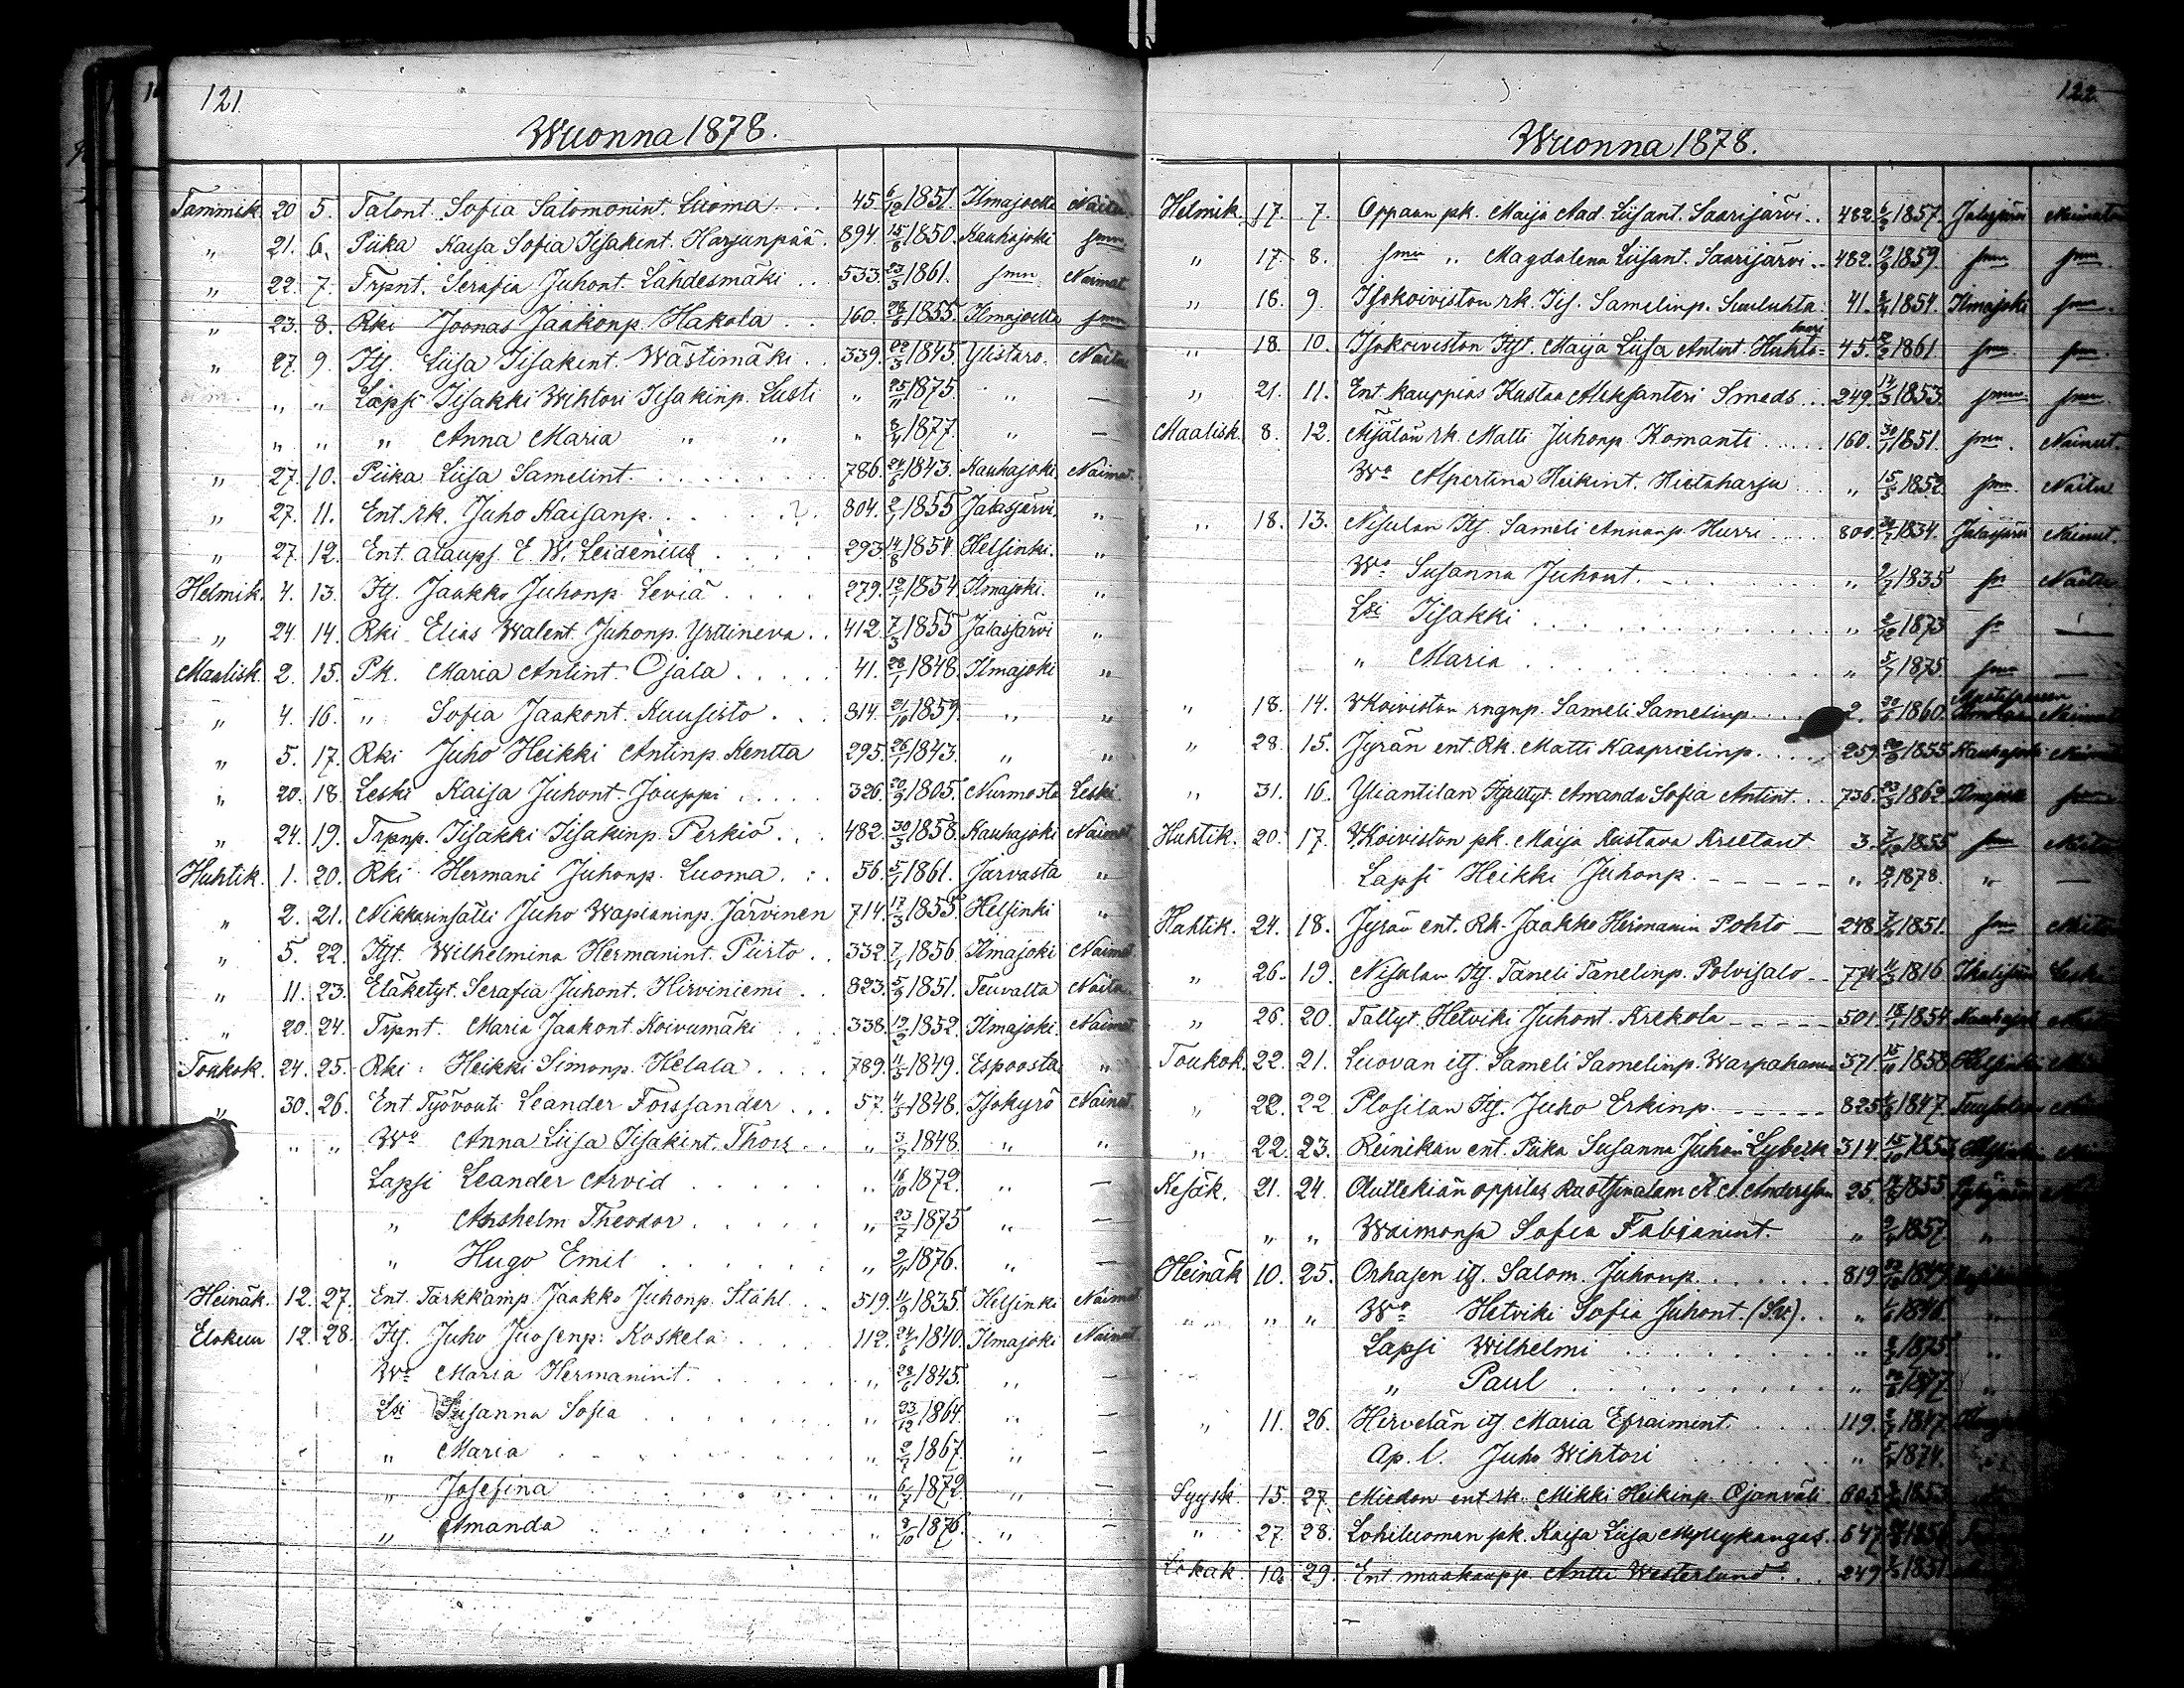 121.
Wuonna 1878.
Tammik. 20 5. Talont. Sofia Salomonint. Luoma . . . 45. 6/12 1851. Ilmajoelta Naitu
" 21. 6. Piika Kaisa Sofia Iisakint. Harjunpää. 894. 15/8 1850. Kauhajoki smn
" 22. 7. Trpnt. Serafia Juhont. Lähdesmäki . . 533. 23/3 1861. smn Naimat.
" 23. 8. Rki Joonas Jaakonp. Hakola . . 160. 1855. Ilmajoelta smn
" 27. 9. Itj. Liisa Iisakint. Wästimäki . . 339. 22/3 1845. Ylistaro. Naitu
" " Lapsi Iisakki Wihtori Iisakinp. Lusti " 25/11 1875. " —
" " " Anna Maria " " " 1877. " —
" 27. 10. Piika Liisa Samelint. . . . . . 786. 24/6 1843. Kauhajoki Naimat.
" 27. 11. Ent. rk. Juho Kaisanp. . . . . ? . 804. 2/1 1855 Jalasjärvi. "
" 27. 12. Ent. alaups. E. W. Leidenius . . . . 293. 14/8 1854. Helsinki. "
Helmik. 4. 13. Itj. Jaakko Juhonp. Leviä . . . . 279. 12/1 1854. Ilmajoki. "
" 24. 14. Rki Elias Walent. Juhonp. Yrttineva . . 412. 7/3 1855 Jalasjärvi "
Maalisk. 2. 15. Pk. Maria Antint. Ojala . . . . . 41. 28/1 1848. Ilmajoki "
" 4. 16. " Sofia Jaakont. Kuusisto . . . 814. 21/10 1859. " "
" 5. 17. Rki Juho Heikki Antinp. Kentta 295. 26/1 1843. " "
" 20. 18. Leski Kaisa Juhont. Jouppi . . . . 326. 20/9 1805. Nurmosta Leski
" 24. 19. Trpnp. Iisakki Iisakinp. Perkiö . . . 482. 30/3 1858. Kauhajoki Naimat
Huhtik. 1. 20. Rki Hermani Juhonp. Luoma . : . 56. 5/1 1861. Jurvasta "
" 2. 21. Nikkarinsälli Juho Wapianinp. Järvinen 714. 17/3 1855. Helsinki "
" 5. 22. Itjt. Wilhelmina Hermanint. Piirto . . 332. 7/1 1856 Ilmajoki Naimat.
" 11. 23. Eläketyt. Serafia Juhont. Hirviniemi . . 823. 5/9 1851. Teuvalta Naitu
" 20. 24. Trpnt. Maria Jaakont. Koivumäki . . . . 338. 12/3 1852. Ilmajoki. Naimat.
Toukok. 24. 25. Rki Heikki Simonp. Helala . . . . 789. 11/5 1849. Espoosta "
" 30. 26. Ent. Työvouti Leander Forssander . . . 57. 4/5 1848. Isokyrö Nainut
" " Wo Anna Liisa Iisakint. Thors . . " 3/5 1848. " "
Lapsi Leander Arvid . . . . . " 16/10 1872. " —
" Anshelm Theodor . . . . . " 23/7 1875 " —
" Hugo Emil . . . . . . " 1876. " —
Heinäk. 12. 27. Ent. Tarkkamp. Jaakko Juhonp. Ståhl . . 519. 11/9 1835. Helsinki Naimat
Elokuu 12. 28. Itj. Juho Juosenp. Koskela . . . . 112. 24/6 1840. Ilmajoki Nainut
Wo Maria Hermanint. . . . . . " 29/6 1845. " —
Lsi Susanna Sofia . . . . . . " 23/12 1864. " —
" Maria . . . . . . . " 1867. " —
" Josefina . . . . . . . " 6/7 1872. " —
" Amanda . . . . . . . " 9/10 1876. " —
122.
Wuonna 1878.
Helmik. 17. 7. Oppaan pk. Maija Aad. Liisant. Saarijärvi . . 482. 1857. Jalasjärvi Naimaton
" 17. 8. smn " Magdalena Liisant. Saarijärvi . . 482. 12/9 1859. smn smn.
" 18. 9. Isokoiviston rk. Iis. Samelinp. Suuluhta . 41. 1854. Ilmajoki smn.
" 18. 10. Isokoiviston Itjt. Maija Liisa Antint. Huhta= 45. 1861 smn smn.
" 21. 11. Ent. kauppias Kustaa Aleksanteri Smeds . . . 249. 1853. smn smn.
Maalisk. 8. 12. Äijälän rk. Matti Juhonp. Komanti . . . . 160. 30/1 1851. smn. Nainut.
Wo Alpertina Heikint. Hietaharju . . . " 15/5 1852. smn. Naitu
" 18. 13. Nisulan Itj. Sameli Annanp. Hurri . . . . 800. 1834. Jalasjärvi Nainut.
Wo Susanna Juhont. . . . . . " 2/7 1835 sn Naitu
Lsi Iisakki . . . . . . . . " 2/12 1873 sn —
" Maria . . . . . . . . " 5/7 1875 smn —
" 18. 14. WKoiviston rngnp. Sameli Samelinp. . . . 2. 1860.
" 28. 15. Jyrän ent. Rk. Matti Kaaprielinp. . . . . 259. 1855. Kauhajoki
" 31. 16. Yliantilan Amanda Sofia Antint. . . 736. 23/3 1862. Ilmajoki smn
Huhtik. 20. 17. V.Koiviston pk. Maija Kustava Kreetant 3. 1855 smn Naitu
Lapsi Heikki Juhonp. - - - - - " 1878. " —
Huhtik. 24. 18. Jyrän ent. Rk. Jaakko Hermanin Pohto — 248. 1851. smn
" 26. 19. Nisulan Itj. Taneli Tanelinp. Polvisalo — 774. 1816 Leski
" 26. 20. Taltyt. Hetviki Juhont. Krekola - - - - - 501 18/1 1854. Kauhajoki
Toukok. 22. 21. Luovan itj. Sameli Samelinp. 371. 15/10 1858 Helsinki
" 22. 22. Plosilan Itj. Juho Erkinp. - - - - - 825. 1847.
" 22. 23. Reinikan ent. Piika Susanna Juhon Lybeck 314. 15/10 1853.
Kesäk. 21. 24. Oluttekiän oppilas Ruotsinalam. Andersson 25. 1855
" " Waimonsa Sofia Fabianint. " 1857 "
Heinäk 10. 25. Orhasen itj. Salom. Juhonp. . . . . . 819
" " Wo Hetviki Sofia Juhont. (Sv.) . . " 1846
Lapsi Wilhelmi . . . . . . . " 1875
" Paul . . . . . . . . " 1877.
" 11. 26. Hirvelän itj. Maria Efraimint. . . . . 119. 1847.
Ap. l. Juho Wihtori " 1874.
Syysk. 15. 27. Miedon ent. rk. Mikki Heikinp. Ojanväli 805
" 27. 28. Lohiluoman pk. Kaija Liisa Myllykangas. 647
Lokak. 10. 29. Ent. maakaupp. Antti Westerlund . . . 249 1851